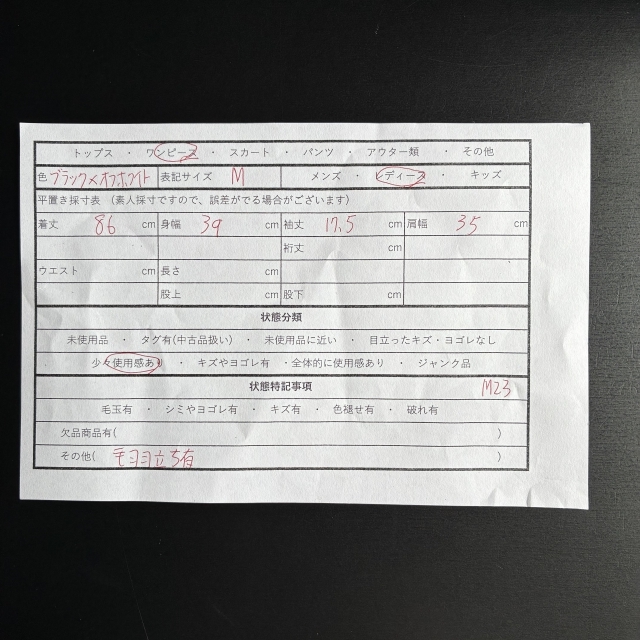 トップス ・ ワンピース ・ スカート ・ パンツ ・ アウター類 ・ その他
色 ブラック×オフホワイト 表記サイズ M メンズ ・ レディース ・ キッズ
平置き採寸表 （素人採寸ですので、誤差がでる場合がございます）
着丈 86 cm 身幅 39 cm 袖丈 17.5 cm 肩幅 35 cm
裄丈 cm
ウエスト cm 長さ cm
股上 cm 股下 cm
状態分類
未使用品 ・ タグ有(中古品扱い) ・ 未使用品に近い ・ 目立ったキズ・ヨゴレなし
少々使用感あり ・ キズやヨゴレ有 ・全体的に使用感あり ・ ジャンク品
状態特記事項 M23
毛玉有 ・ シミやヨゴレ有 ・ キズ有 ・ 色褪せ有 ・ 破れ有
欠品商品有( )
その他( 毛羽立ち有 )